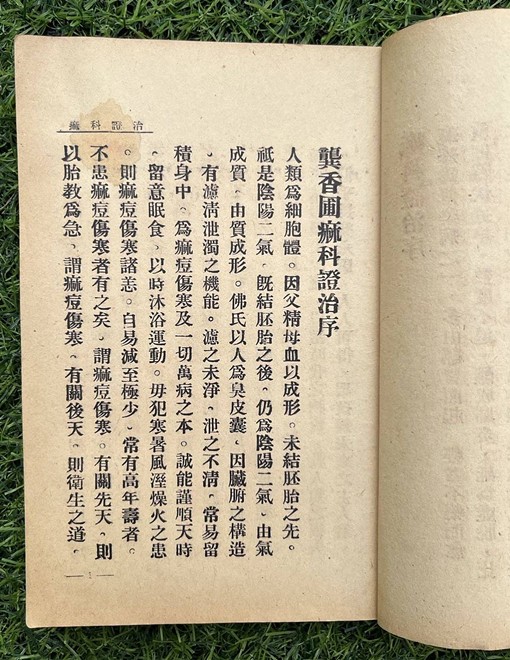 痲科證治
龔香圃痲科證治序
人類爲細胞體。因父精母血以成形。未結胚胎之先。
祇是陰陽二氣。旣結胚胎之後。仍爲陰陽二氣。由氣
成質。由質成形。佛氏以人爲臭皮囊。因臟腑之構造
。有濾淸泄濁之機能。濾之未淨。泄之不淸。常易留
積身中。爲痲痘傷寒及一切萬病之本。誠能謹順天時
。留意眠食。以時沐浴運動。毋犯寒暑風溼燥火之患
。則痲痘傷寒諸恙。自易減至極少。常有高年壽者。
不患痲痘傷寒者有之矣。謂痲痘傷寒。有關先天。則
以胎教爲急。謂痲痘傷寒。有關後天。則衛生之道。
— 1 —